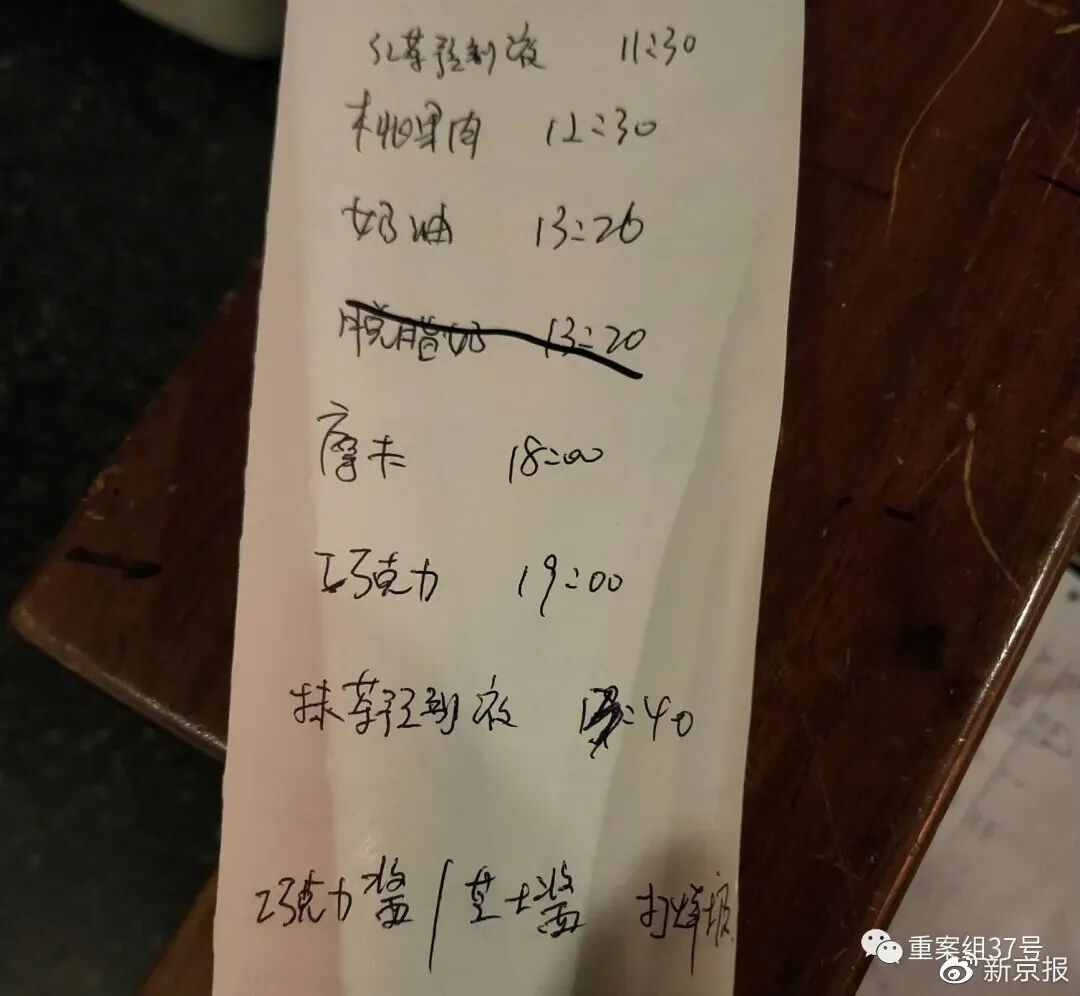 红茶预制液 11:30
桃果肉 12:30
奶油 13:26
脱脂奶 13:20
摩卡 18:00
巧克力 19:00
抹茶预制液 :40
巧克力酱/芝士酱 打烊
重案组37号
新京报